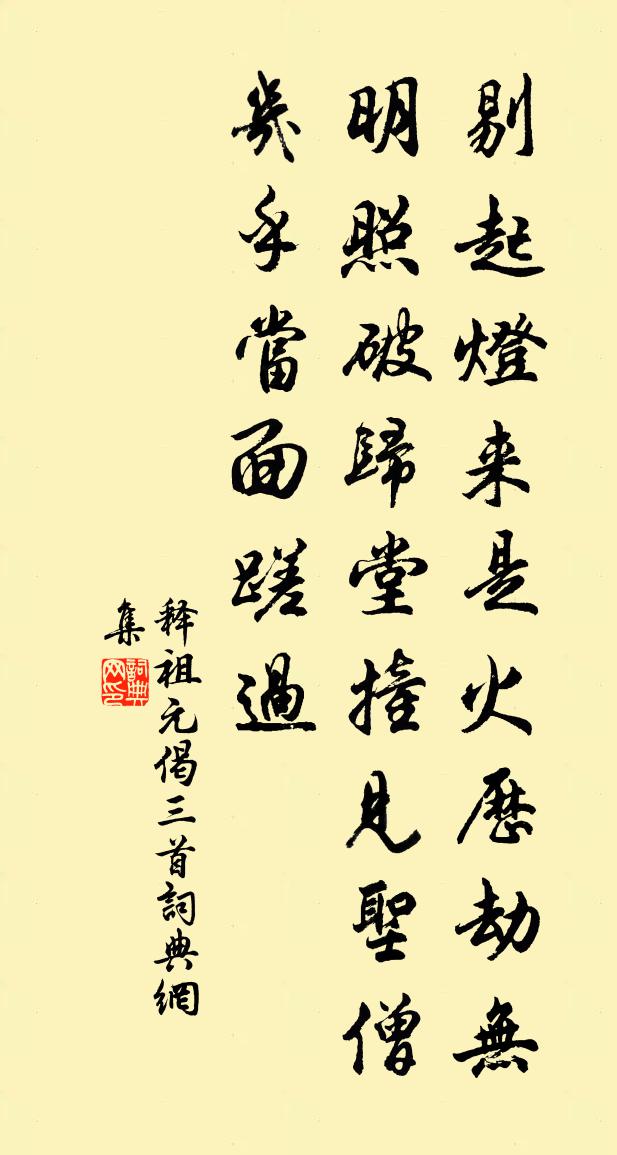 剔起燈来是火歷劫無
明照破歸堂撞見聖僧
幾乎當面蹉過
释祖元偈三首詞典網
集
詞典网印